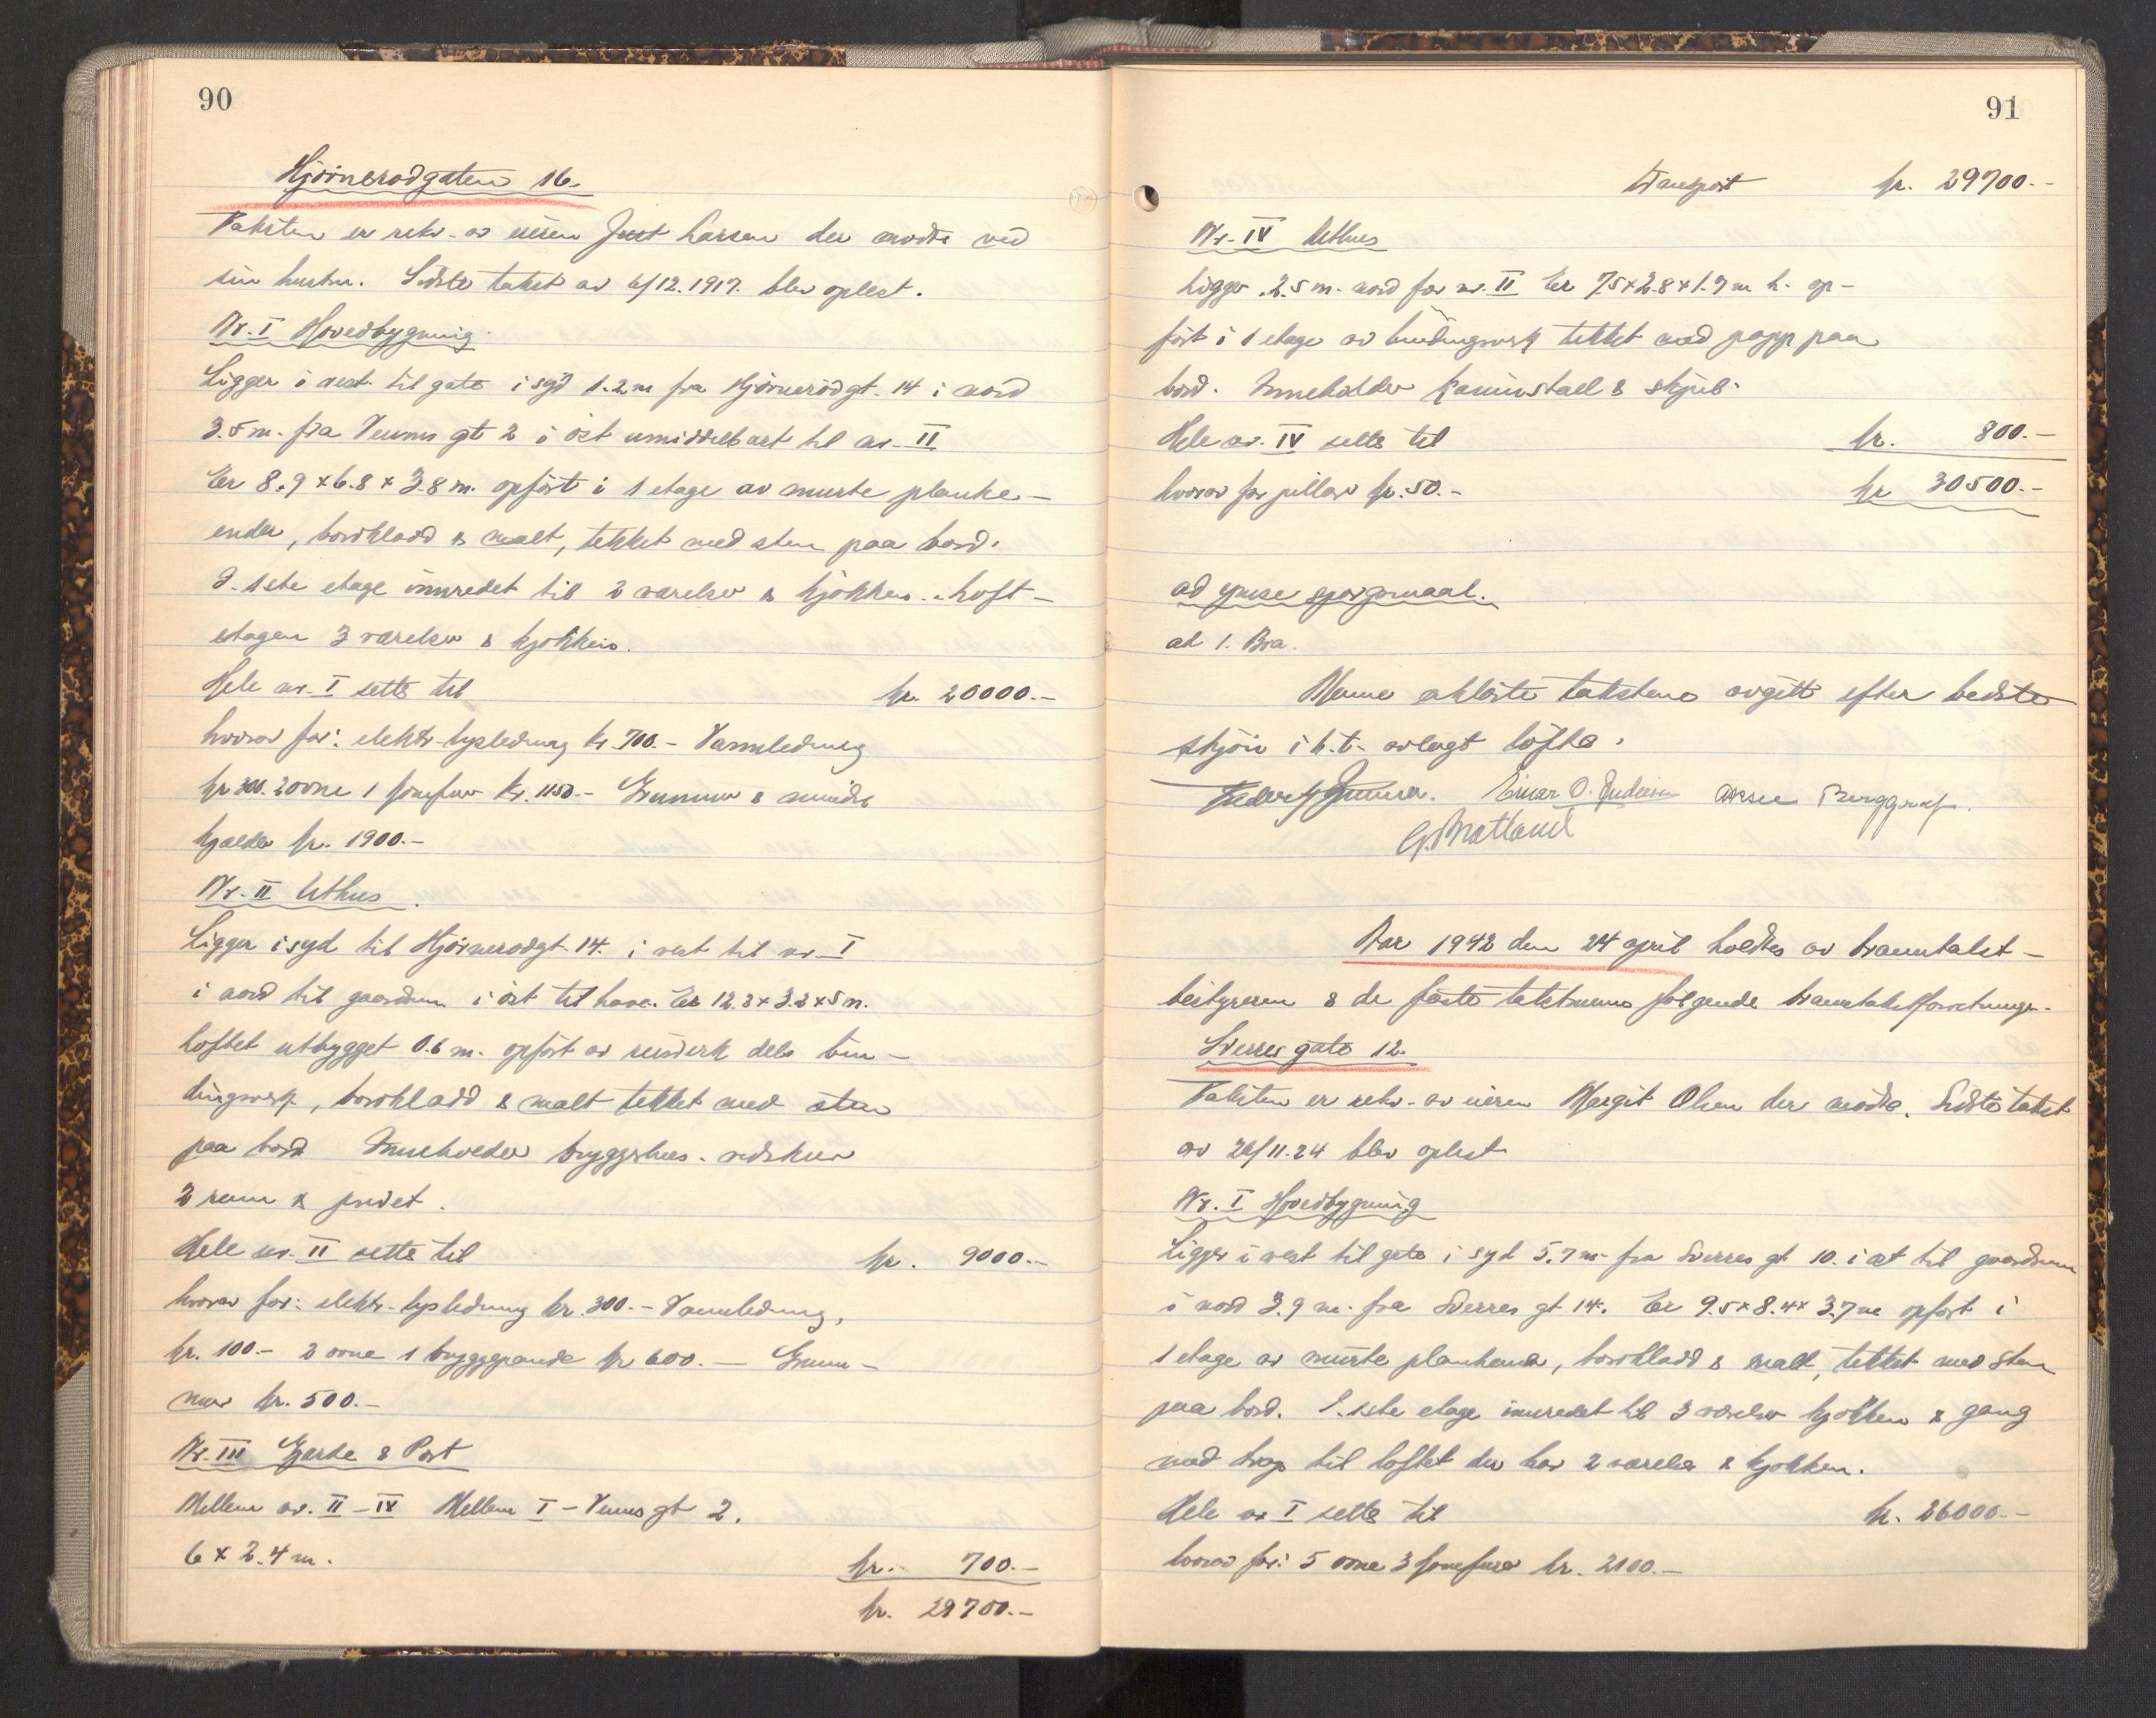 90
Hjörnerödgaten 16.
Taksten er rekv. av eieren Just Larsen der mødte ved
sin hustru. Sidste takst av 6/12.1917. blev oplest.
Nr. I Hovedbygning.
Ligger i vest til gate i syd 1.2 m fra Hjörnerödgt. 14 i nord
3.5 m. fra Venus gt 2 i öst umiddelbart til nr. II
Er 8.9 x 6.8 x 3.8 m. opført i 1 etage av murte planke-
ender, bordkladd & malt, tekket med sten paa bord.
I. 1ste etage innredet til 2 værelser & kjøkken. Loft-
etagen 3 værelser & kjøkken.
Hele nr. I settes til kr. 20000.-
hvorav for: elektr. lysledning kr. 700.- Vannledning
kr 300. 2 ovne 1 komfur kr. 1150.- Grunnmur &
kjælder kr. 1900.-
Nr. II Uthus.
Ligger i syd til Hjörnerödgt. 14. i vest til nr. I
i nord til gaardsrum i öst til have. Er 12.2 x 3.2 x 5 m.
Loftet utbygget 0.6 m. opført av reisverk dels bin-
dingsverk, bordkladd & malt tekket med sten
paa bord Inneholder bryggerhus. vedskur
2 rum & privet.
Hele nr. II settes til kr. 9000.-
hvorav for: elektr. lysledning kr. 300.- Vannledning,
kr. 100.- 2 ovne 1 bryggepande kr 600.- Grunn-
mur kr. 500.-
Nr. III Gjerde & Port
Mellem nr. II - IV Mellem I - Venus gt 2.
6 x 2.4 m. kr. 700.-
kr. 29700.-
91
Transport kr. 29700.-
Nr. IV Uthus
Ligger 2.5 m. nord for nr. II Er 7.5 x 2.8 x 1.9 m h. op-
ført i 1 etage av bindingsverk tekket med papp paa
bord. Inneholder kaninstall & skjul.
Hele nr. IV settes til kr. 800.-
hvorav for pillarer kr. 50.- kr 30500.-
ad ymse spørgsmaal.
ad 1. Bra.
Menne erklærte taksten avgitt efter bedste
skjön i h.t. avlagt löfte.
Einar O. Andersen Berggraf.
G. Matland
Aar 1942 den 24 april holdtes av branntakst-
bestyreren & de faste takstmenn følgende branntakstforretninger.
Sverres gate 12.
Taksten er rekv. av eieren Margit Olsen der mødte. Sidste takst
av 26/11.24 blev oplest
Nr. I Hovedbygning
Ligger i vest til gate i syd 5.7 m fra Sverres gt 10. i øst til gaardsrum
i nord 3.9 m. fra Sverres gt. 14. Er 9.5 x 8.4 x 3.7 m opført i
1 etage av murte plankender, bordkladd & malt, tekket med sten
paa bord. I. 1ste etage innredet til 3 værelser kjøkken & gang
med trap til loftet der har 2 værelser & kjøkken.
Hele nr I settes til kr. 26000.-
hvorav for: 5 ovne 3 komfurer kr. 2100.-